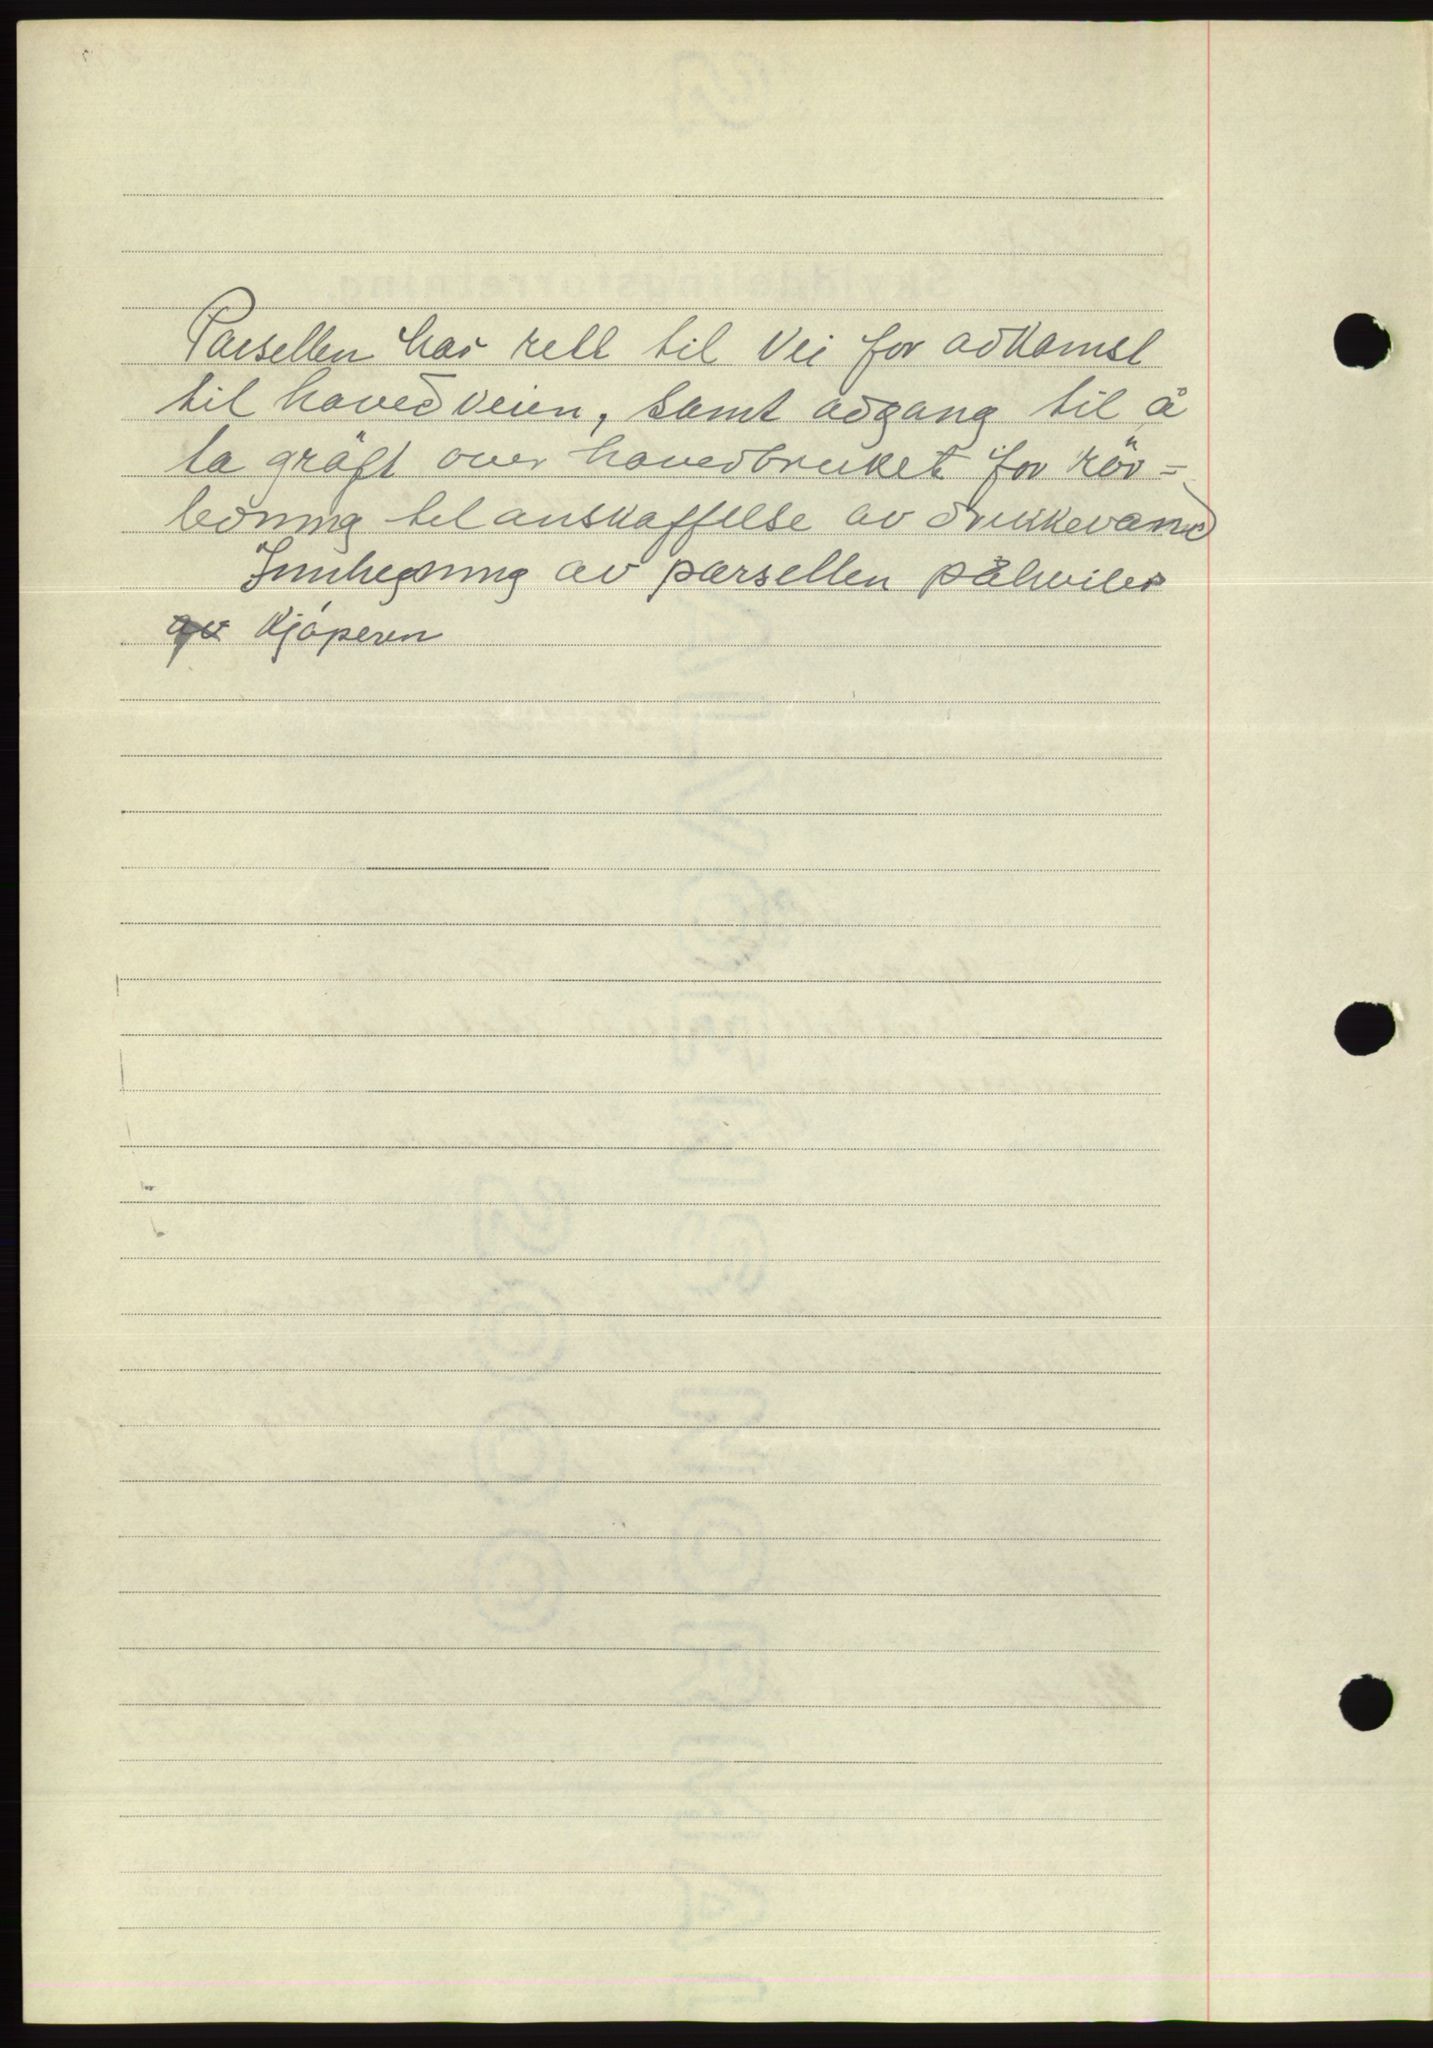 Parsellen har rett til vei for adkomst
til hovedveien, samt adgang til å
ta gröft over hovedbruket for rör=
ledning til anskaffelse av drikkevand
Innhegning av parsellen påhviler
av kjöperen